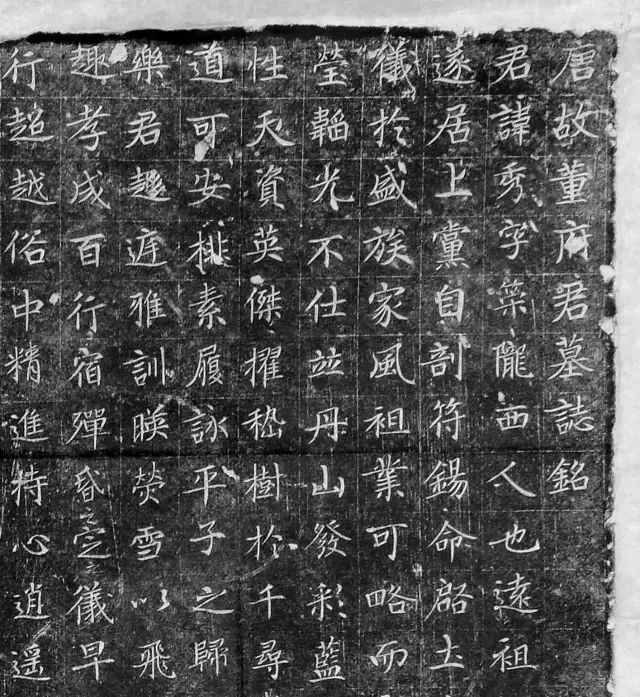 唐故董府君墓誌銘
君諱秀字筞隴西人也遠祖
遂居上黨自剖符錫命啓土
儀於盛族家風祖業可略而
瑩韜光不仕並丹山發彩藍
性天資英傑擢嵇樹於千尋
道可安排素履詠平子之歸
樂君趍庭雅訓暎熒雪以飛
趣孝成百行宿殫昏定儀早
行超越俗中精進持心逍遥